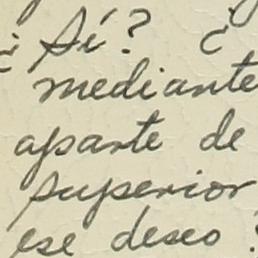 ¿ Sí? ¿
mediante
aparte de
superior
ese deseo?